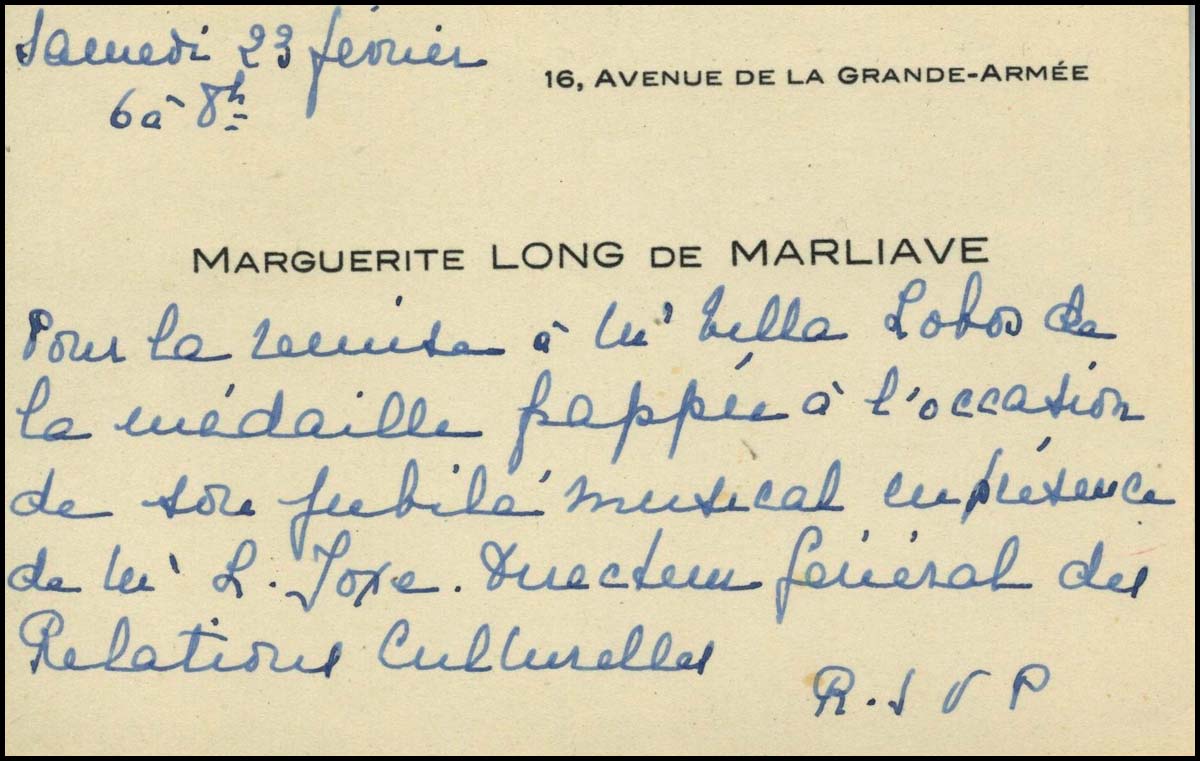 Samedi 23 février
6 à 8h
16, AVENUE DE LA GRANDE-ARMÉE
MARGUERITE LONG DE MARLIAVE
Pour la remise à Mr Villa Lobos de
la médaille frappée à l'occasion
de son jubilé musical en présence
de Mr L. Joxe. Directeur Général des
Relations Culturelles
R. S V P